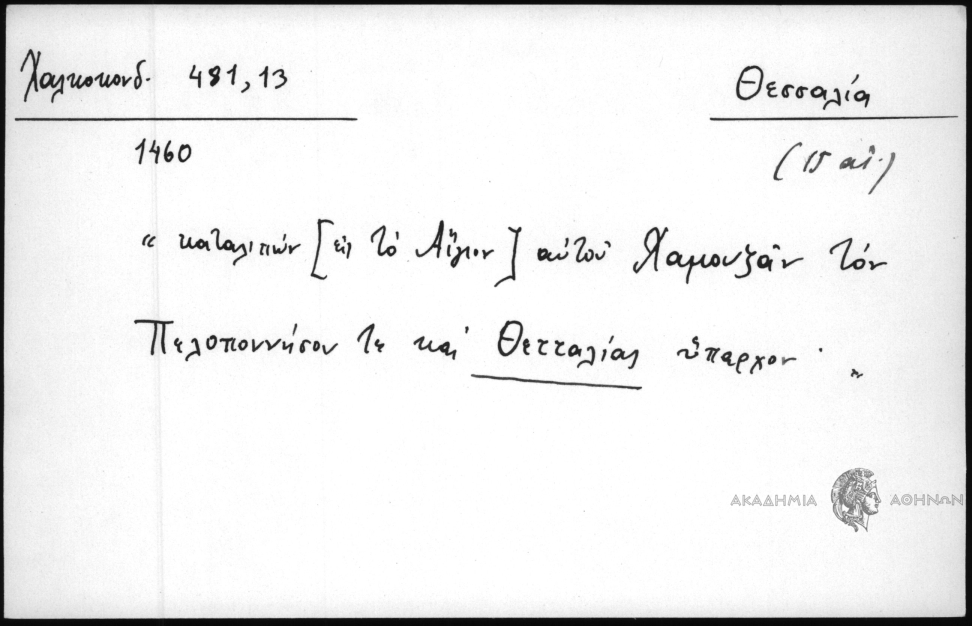 Χαλκοκονδ. 481,13
Θεσσαλία
1460
(15 αἰ.)
" καταλιπὼν [εἰς τὸ Αἴγιον] αὐτοῦ Χαμουζᾶν τὸν
Πελοποννήσου τε καὶ Θετταλίας ὕπαρχον · "
ΑΚΑΔΗΜΙΑ ΑΘΗΝΩΝ